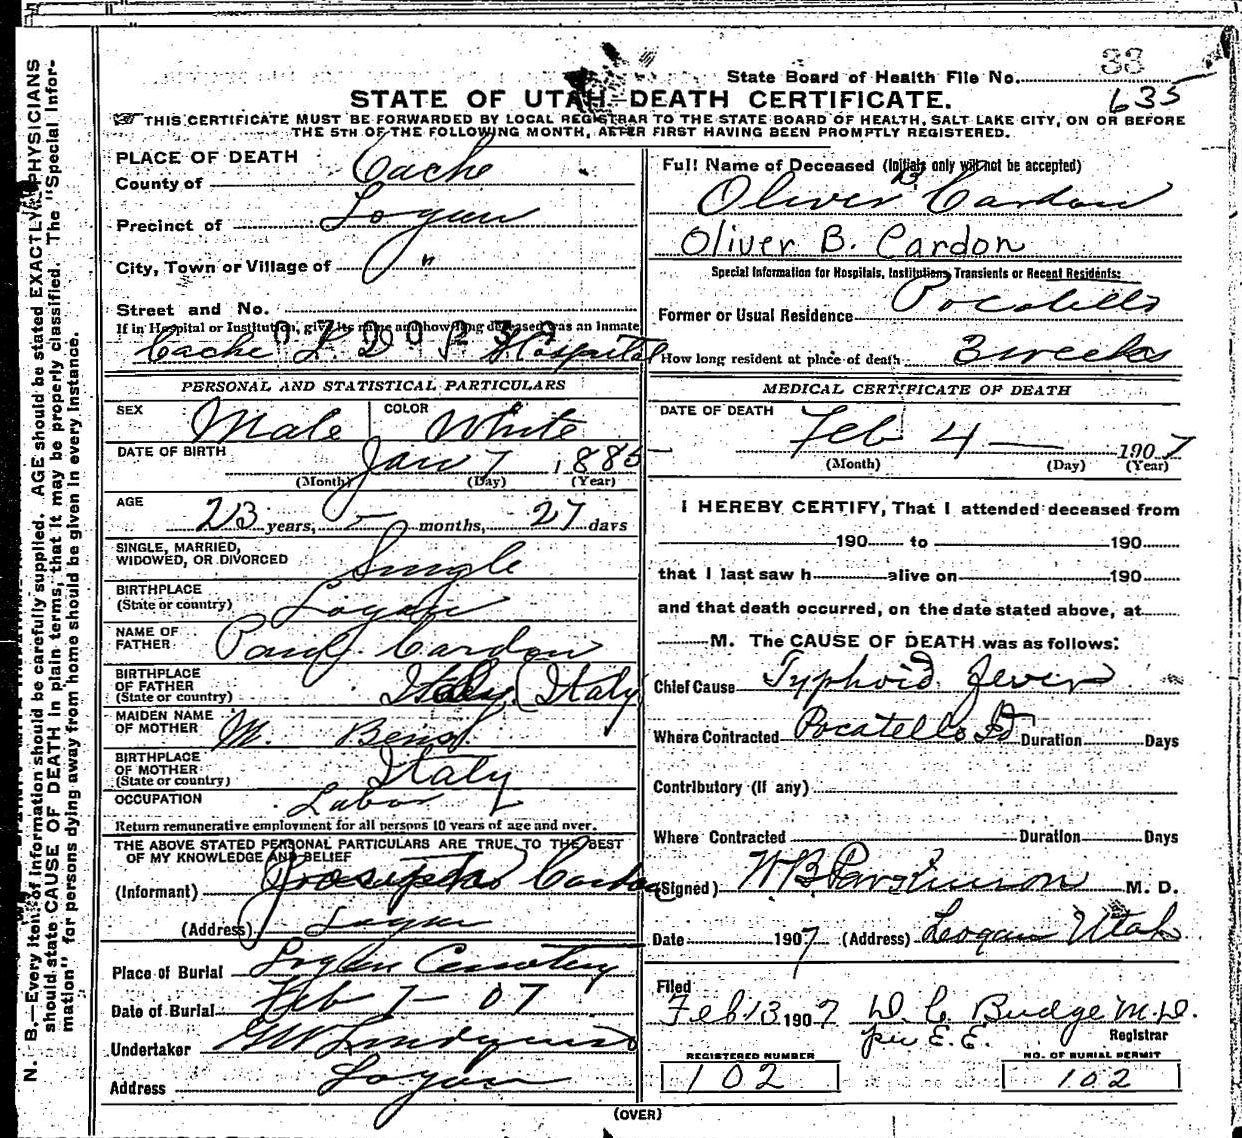 33
State Board of Health File No.
635
STATE OF UTAH—DEATH CERTIFICATE.
THIS CERTIFICATE MUST BE FORWARDED BY LOCAL REGISTRAR TO THE STATE BOARD OF HEALTH, SALT LAKE CITY, ON OR BEFORE
THE 5TH OF THE FOLLOWING MONTH, AFTER FIRST HAVING BEEN PROMPTLY REGISTERED.
N. B.—Every item of information should be carefully supplied. AGE should be stated EXACTLY. PHYSICIANS
should state CAUSE OF DEATH in plain terms, that it may be properly classified. The "Special Infor-
mation" for persons dying away from home should be given in every instance.
PLACE OF DEATH
County of Cache
Precinct of Logan
City, Town or Village of "
Street and No.
If in Hospital or Institution, give its name and how long deceased was an inmate
0700239
Cache L D S Hospital
PERSONAL AND STATISTICAL PARTICULARS
SEX Male COLOR White
DATE OF BIRTH Jan 7 1885
(Month) (Day) (Year)
AGE 23 years, months, 27 days
SINGLE, MARRIED,
WIDOWED, OR DIVORCED Single
BIRTHPLACE
(State or country) Logan
NAME OF
FATHER Paul Cardon
BIRTHPLACE
OF FATHER
(State or country) Italy (Italy)
MAIDEN NAME
OF MOTHER M.
BIRTHPLACE
OF MOTHER
(State or country) Italy
OCCUPATION Labor
Return remunerative employment for all persons 10 years of age and over.
THE ABOVE STATED PERSONAL PARTICULARS ARE TRUE TO THE BEST
OF MY KNOWLEDGE AND BELIEF
(Informant) Cardon
(Address) Logan
Place of Burial Logan Cemetery
Date of Burial Feb 7 - 07
Undertaker
Address Logan
Full Name of Deceased (Initials only will not be accepted)
Oliver B. Cardon
Oliver B. Cardon
Special Information for Hospitals, Institutions, Transients or Recent Residents:
Former or Usual Residence Pocatello
How long resident at place of death 3 weeks
MEDICAL CERTIFICATE OF DEATH
DATE OF DEATH Feb 4 1907
(Month) (Day) (Year)
I HEREBY CERTIFY, That I attended deceased from
190 to 190
that I last saw h alive on 190
and that death occurred, on the date stated above, at
M. The CAUSE OF DEATH was as follows:
Chief Cause Typhoid Fever
Where Contracted Pocatello Id Duration Days
Contributory (If any)
Where Contracted Duration Days
(Signed) W B Parkinson M. D.
Date 1907 (Address) Logan Utah
Filed
Feb 13 1907 D. C. Budge M.D.
per E. E. Registrar
REGISTERED NUMBER
102
NO. OF BURIAL PERMIT
102
(OVER)